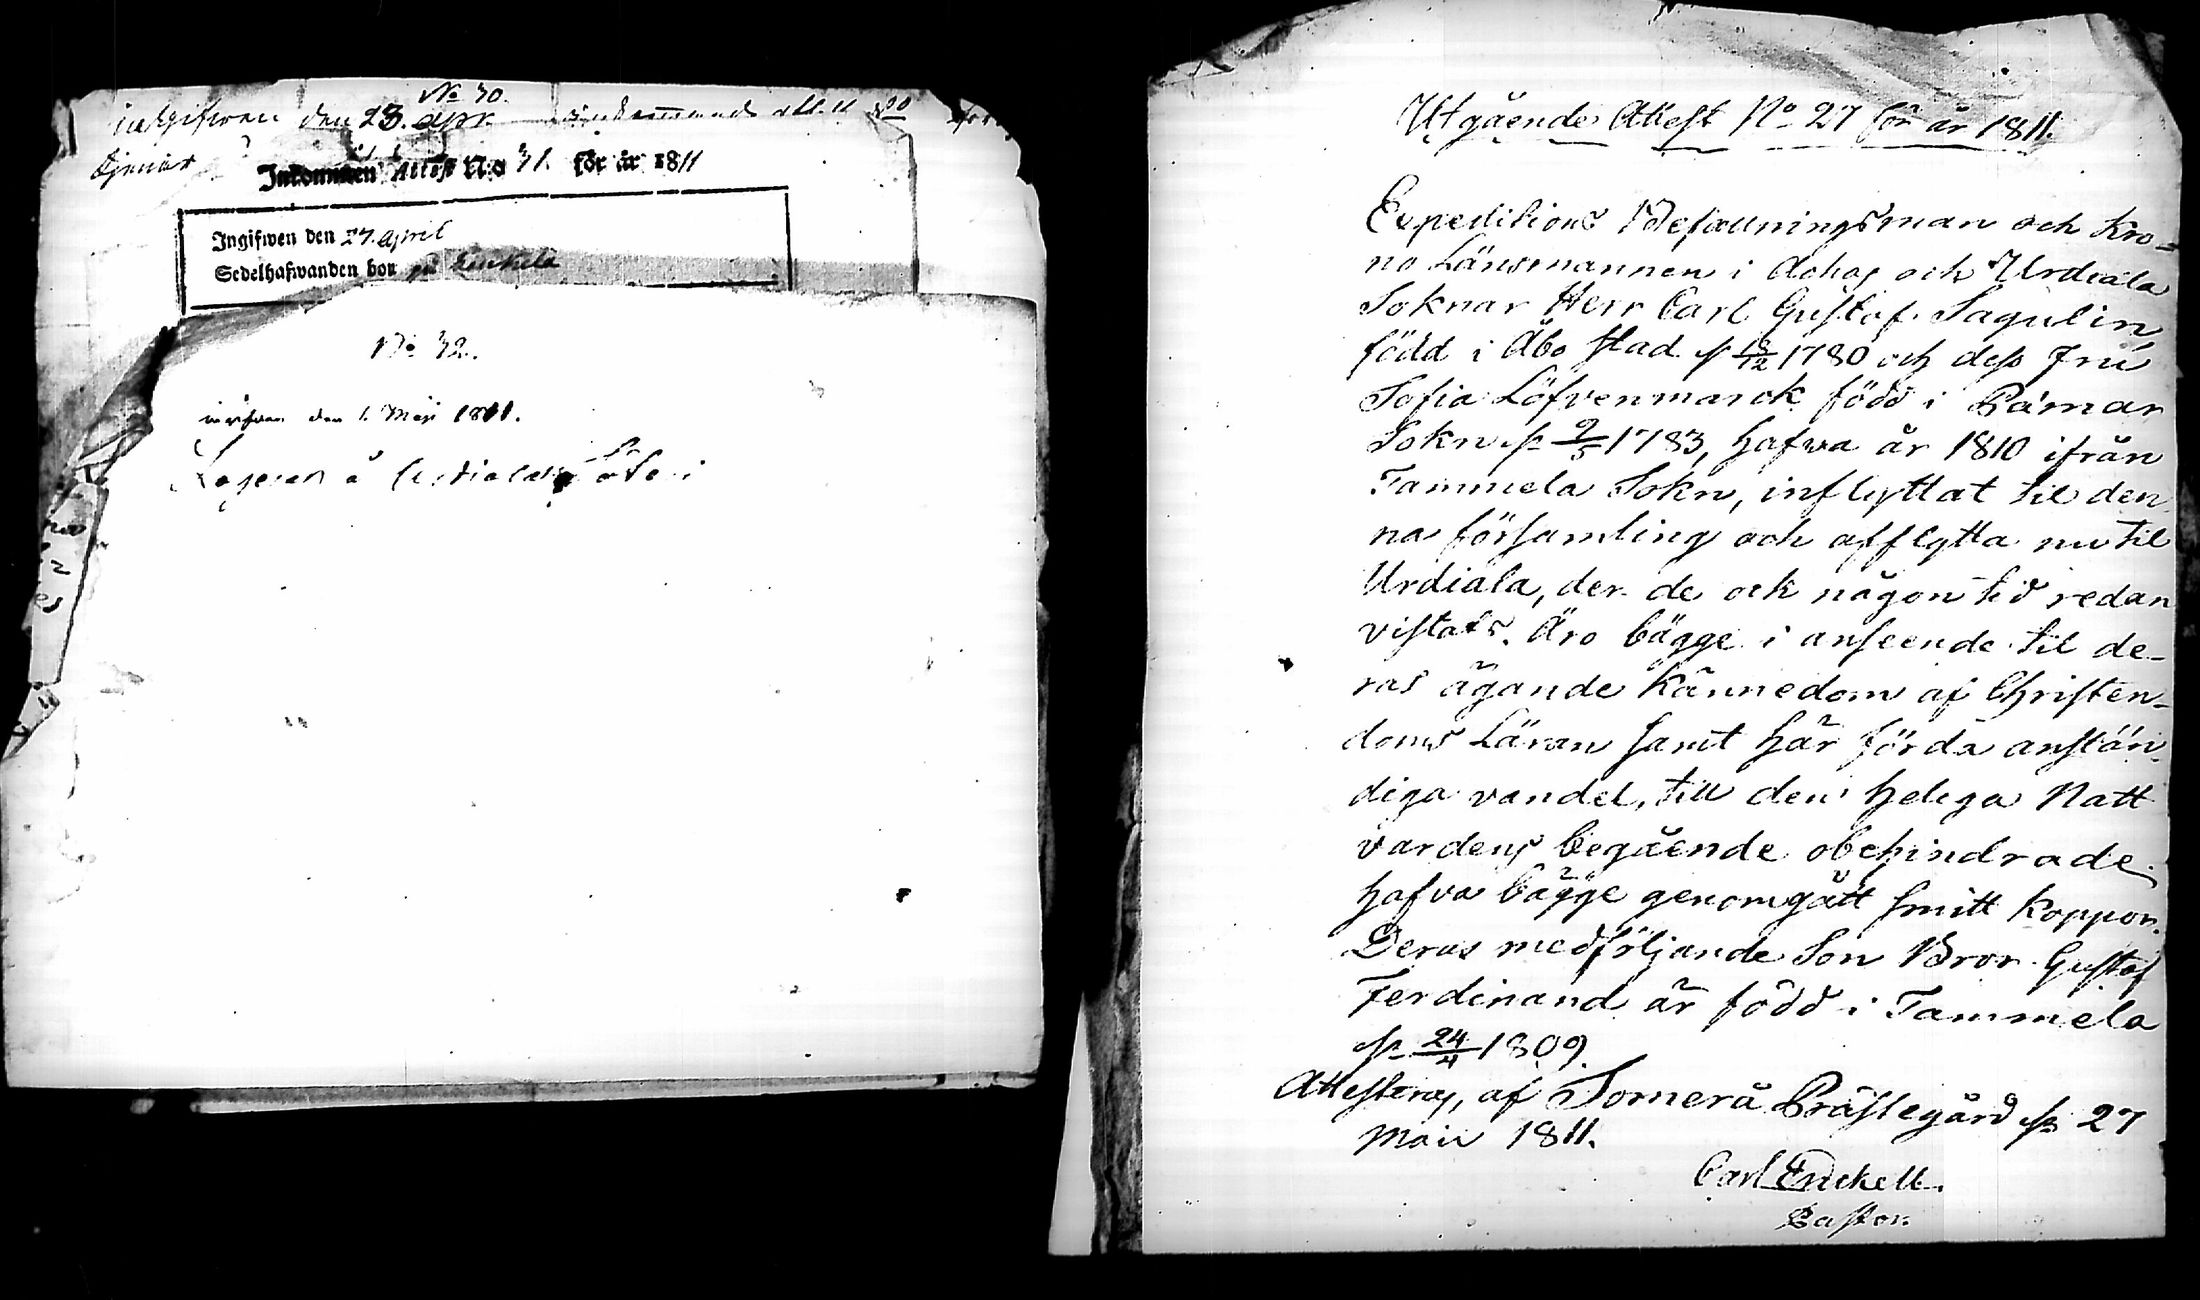 No 30.
ingifwen den 23. Apr.
tjenist
Inkommen Attest N:o 31. för år 1811
Ingifwen den 27. April
Sedelhafwanden bor på
No 32.
den 1. Maji 1811.
Utgående Attest No 27 för år 1811.
Expeditions Befallningsman och Kro=
no Länsmannen i Achas och Urdiala
Soknar Herr Carl Gustaf Sagulin
född i Åbo stad 1780 och dess Fru
Sofia Löfvenmarck född i Pämar
Sokn 9/5 1783, hafva år 1810 ifrån
Tammela Sokn, inflyttat til den
na församling och afflytta nu til
Urdiala, der de ock någon tid redan
vistats. Äro bägge i anseende til de-
ras ägande kännedom af Christen-
doms Läran samt här förda anstän-
diga vandel, till den helega Natt
vardens begående obehindrade.
hafva bägge genomgått smitt Koppor.
Deras medföljande Son Bror Gustaf
Ferdinand är född i Tammela
24/4 1809.
Attesteras, af Somerå Prästegård 27
Maii 1811.
Carl Enckell.
Pastor.